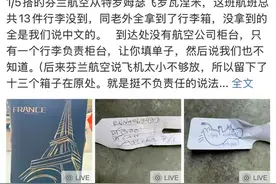 1/5搭的芬兰航空从特罗姆瑟飞罗瓦涅米，这班航班总
共13件行李没到，同老外全拿到了行李箱，没拿到的
全是我们说中文的。 到达处没有航空公司柜台，只
有一个行李负责柜台，让你填单子，然后说我们也不
知道。（后来芬兰航空说飞机太小不够放，所以留下了
十三个箱子在原处。就是挺不负责任的说法... 全文
FRANCE
LIVE
LIVE
LIVE